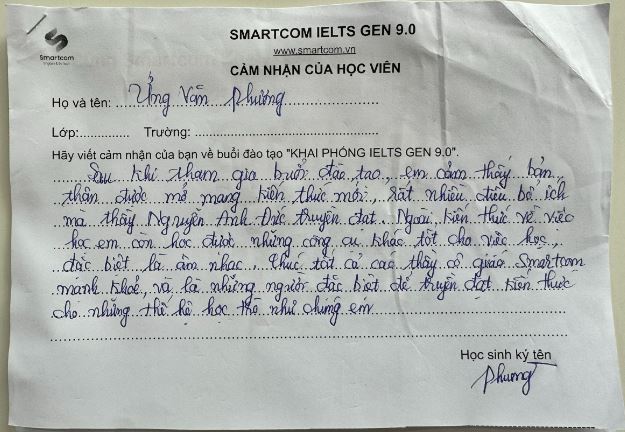 Smartcom
SMARTCOM IELTS GEN 9.0
www.smartcom.vn
CẢM NHẬN CỦA HỌC VIÊN
Họ và tên: Ứng Văn Phương
Lớp: Trường:
Hãy viết cảm nhận của bạn về buổi đào tạo "KHAI PHÓNG IELTS GEN 9.0".
Sau khi tham gia buổi đào tạo, em cảm thấy bản
thân được mở mang kiến thức mới, rất nhiều điều bổ ích
mà thầy Nguyễn Anh Đức truyền đạt. Ngoài kiến thức về việc
học em còn học được những công cụ khác tốt cho việc học,
đặc biệt là âm nhạc. Chúc tất cả các thầy cô giáo Smartcom
mạnh khoẻ, và là những người đặc biệt để truyền đạt kiến thức
cho những thế hệ học trò như chúng em
Học sinh ký tên
Phương